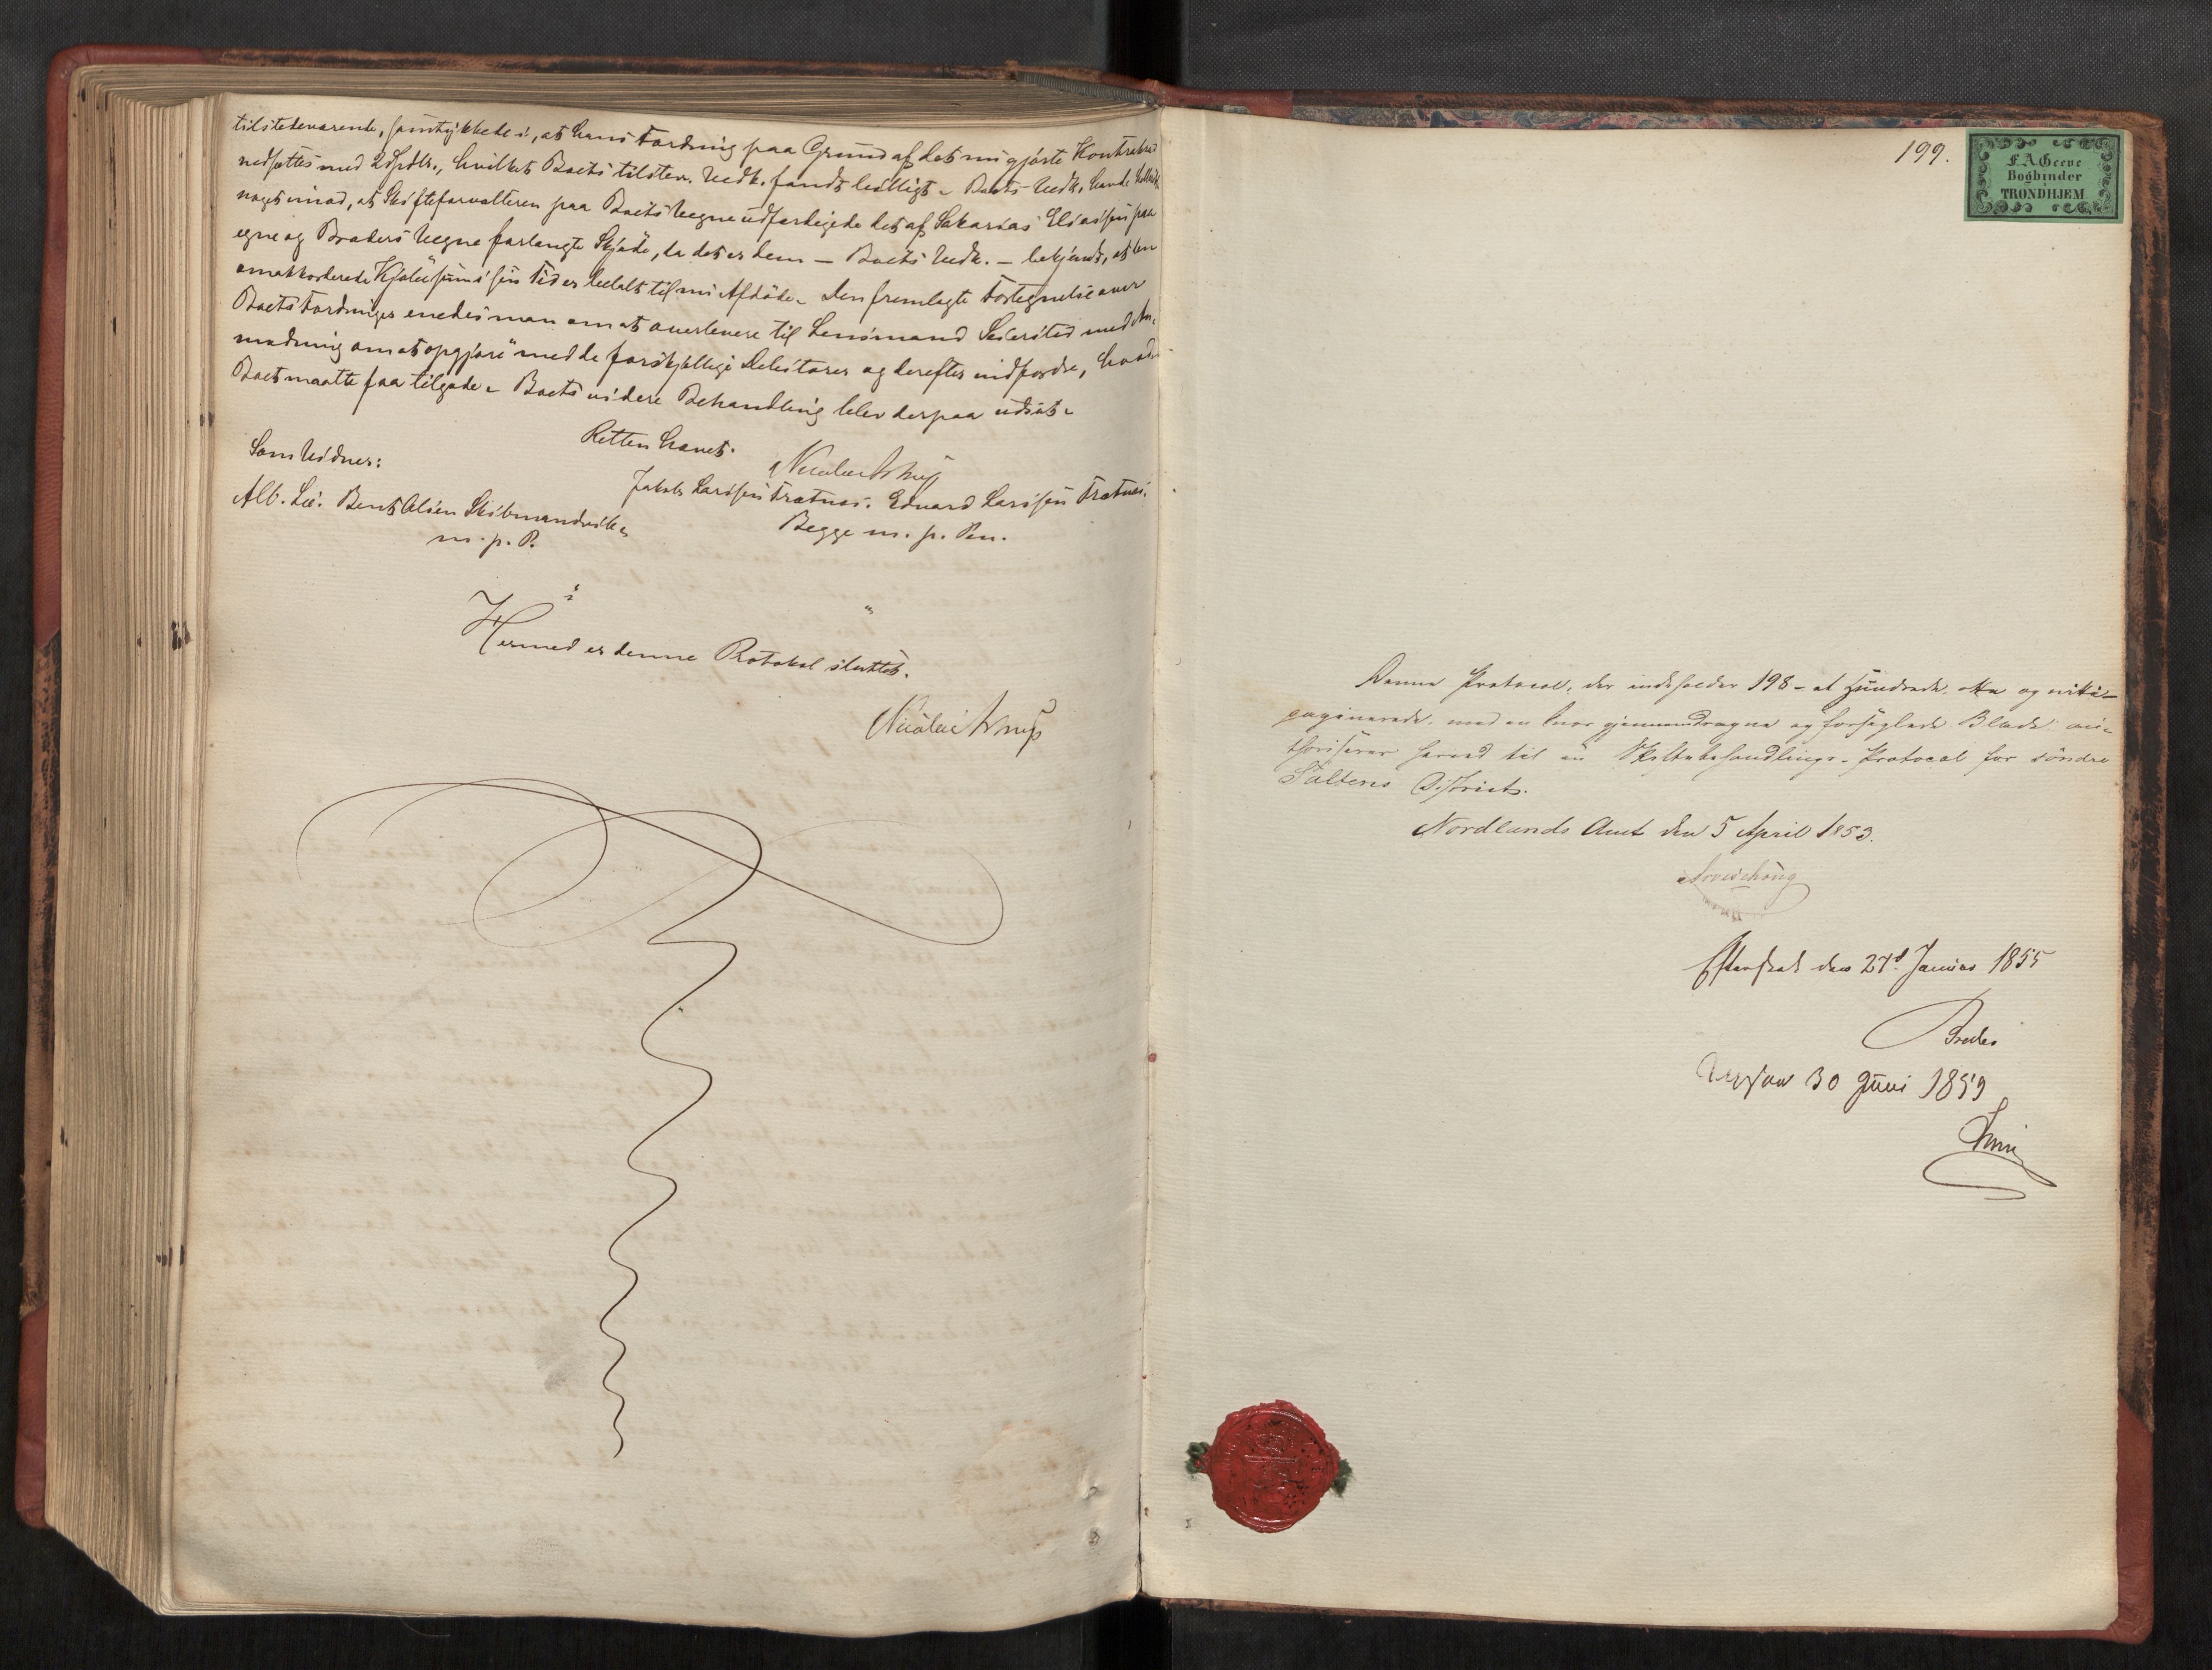 tilstedeværende, samtykkede i, at hans Fordring paa Grund af det nu gjorte Kontrabud
nedsattes med 2 Spdlr., hvilket Boets tilstev. Vedk. fandt billigt. Boets Vedk. havde
noget imod, at Skifteforvalteren paa Boets Vegne udfærdigede det af Sakarias Eliassen paa
egne og Broders Vegne forlangte Skjøde, da det er dem — Boets Vedk. — bekjendt, at den
omakkorderede Kjøbesum i sin Tid er betalt til nu Afdøde. Den fremlagte Fortegnelse over
Boets Fordringer enedes man om at overlevere til Lensmand med An-
modning om at opgjøre med de forskjellige Debitorer og derefter indfordre, hvad
Boet maatte faa tilgode. Boets videre Behandling blev derpaa udsat.
Retten hævet.
Som Vidner:
Alb. Lie. Bent Olsen Skibmandvik
m. p. P.
Jakob Larssen Tratnes. Edvard Larssen Tratnes.
Begge m. p. Pen.
Hermed er denne Protokol sluttet.
Nicolai
199.
F. A. Geeve
Bogbinder
TRONDHJEM
Denne Protocol, der indeholder 198 - et Hundrede otte og nitti -
paginerede, med en Snor gjennemdragne og forseglede Blade au-
thoriseres herved til en Skiftebehandlings-Protocol for søndre
Saltens District.
Nordlands Amt den 5 April 1853.
Efterseet den 27d Januar 1855
30 Juni 1859